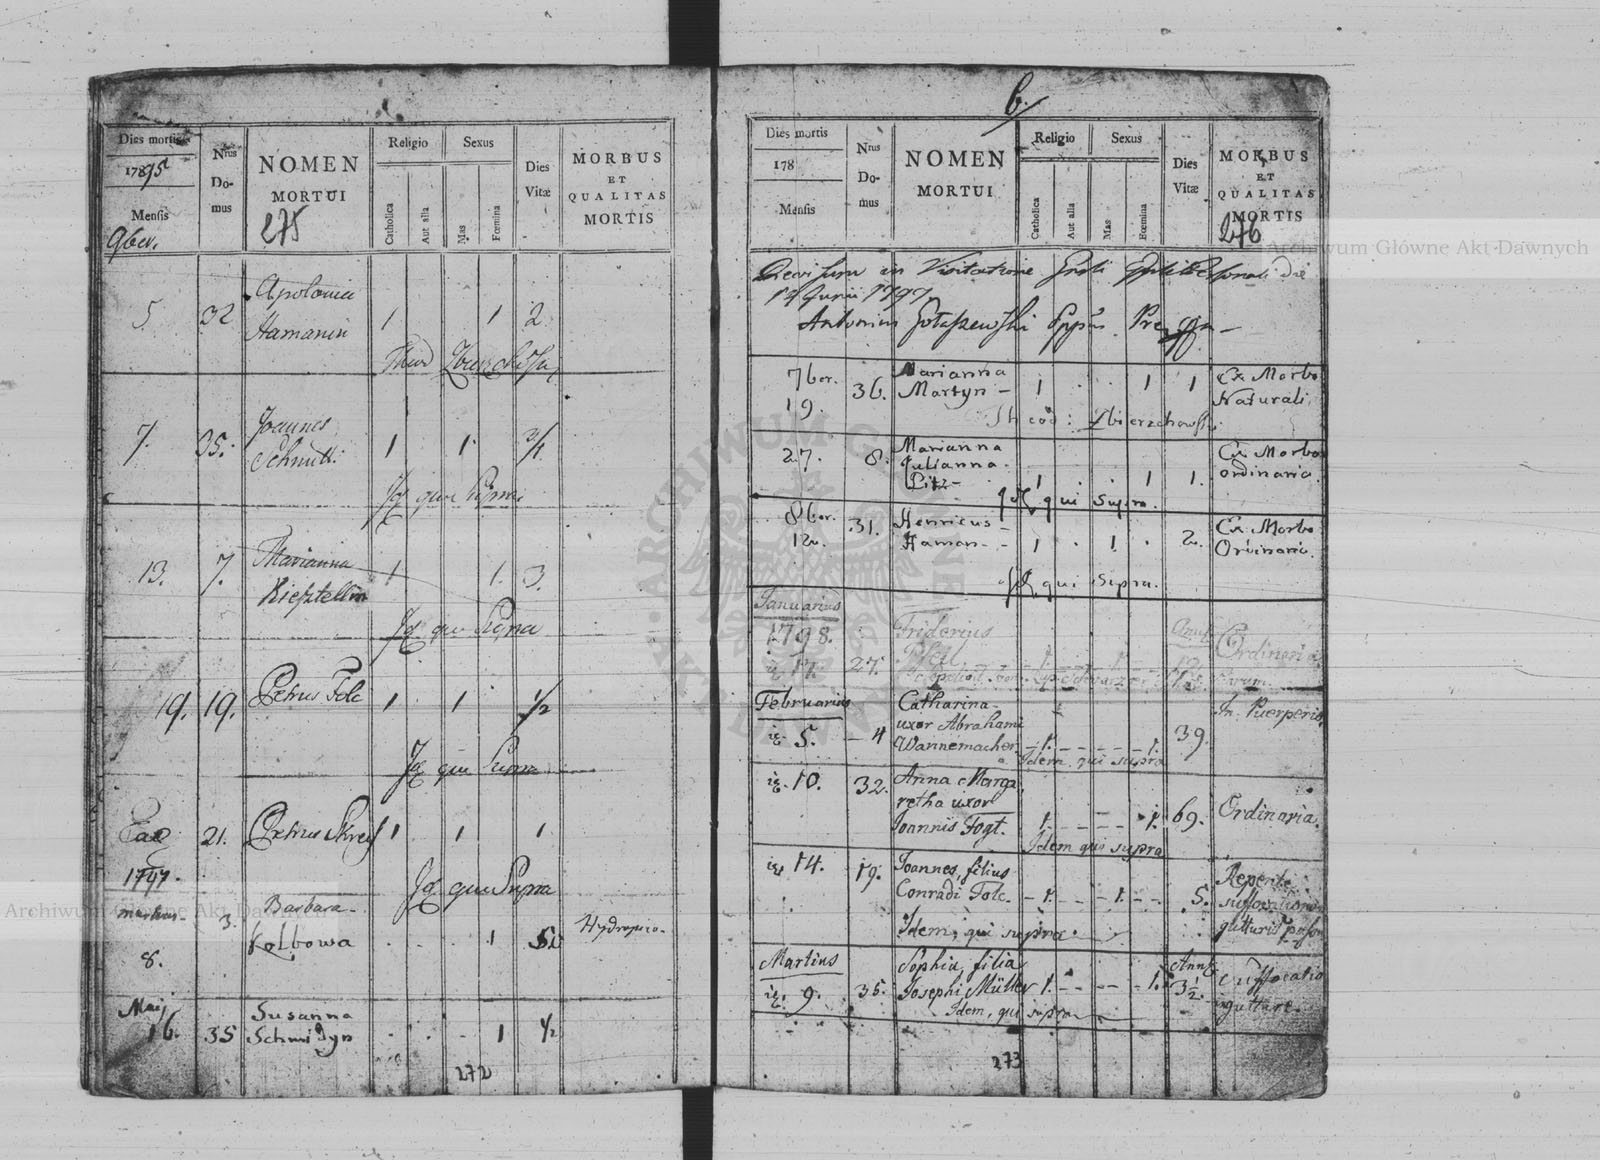 Dies mortis
1795
Mensis
9ber.
Nrus
Do-
mus
NOMEN
MORTUI
275
Religio
Catholica
Aut alia
Sexus
Mas
Fœmina
Dies
Vitæ
MORBUS
ET
QUALITAS
MORTIS
5 32 Apolonia
Hamanin 1 1 2
7. 35. Joannes
Schmitt 1 1
Id qui Supra
13. 7. Marianna
1 1. 3.
Id qui Supra
19. 19. Petrus Folc 1 1 1/2
Id qui Supra
21. Petrus 1 1 1
Id qui Supra
1797.
Martius 3. Barbara
8. Kolbowa 1 Hydropico
Maij
16. 35 Susanna
1 1/2
272
b.
Dies mortis
178
Mensis
Nrus
Do-
mus
NOMEN
MORTUI
Religio
Catholica
Aut alia
Sexus
Mas
Fœmina
Dies
Vitæ
MORBUS
ET
QUALITAS
MORTIS
276
in Visitatione die
Junii 1797
Antonius Gołaszewski Eppus
7ber.
19. 36. Marianna
Martyn 1 1 1 Ex Morbo
Naturali
Theod: Zbierzchowski
27. 8. Marianna
Julianna
Pitz 1 1 1. Ex Morbo
ordinario
Id qui supra.
8ber.
12. 31. Henricus
Haman 1 1 2. Ex Morbo
Ordinario
Id qui supra.
Januarius
1798.
17. 27. Friderius
Ordinaria
Februarius
5. 4 Catharina
uxor Abrahami
Wannemacher 1. 1. 39. In Puerperio
Idem qui supra
10. 32. Anna Marga
retha uxor
Joannis Fogt. 1. 1. 69. Ordinaria.
Idem qui supra
14. 19. Joannes filius
Conradi Folc. 1. 1. 5. Repente
suffocatione
gutturis
Idem, qui supra
Martius
9. 35. Sophia filia
Josephi Müller 1. 1. 3 1/2 Suffocatio
gutture
Idem, qui supra
273
Archiwum Główne Akt Dawnych
Archiwum Główne Akt Dawnych
ARCHIWUM GŁÓWNE AKT DAWNYCH